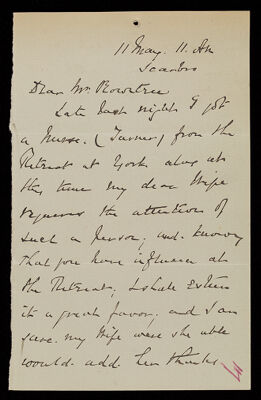 11 May. 11. Am
Scarbro
Dear Mr. Rowntree
Late last night I got
a Nurse. (Turner) from the
Retreat at York as at
this time my dear Wife
requires the attention of
such a person, and knowing
that you have influence at
the Retreat, I shall Esteem
it a great favor. and I am
sure. my Wife were she able
would. add her thanks